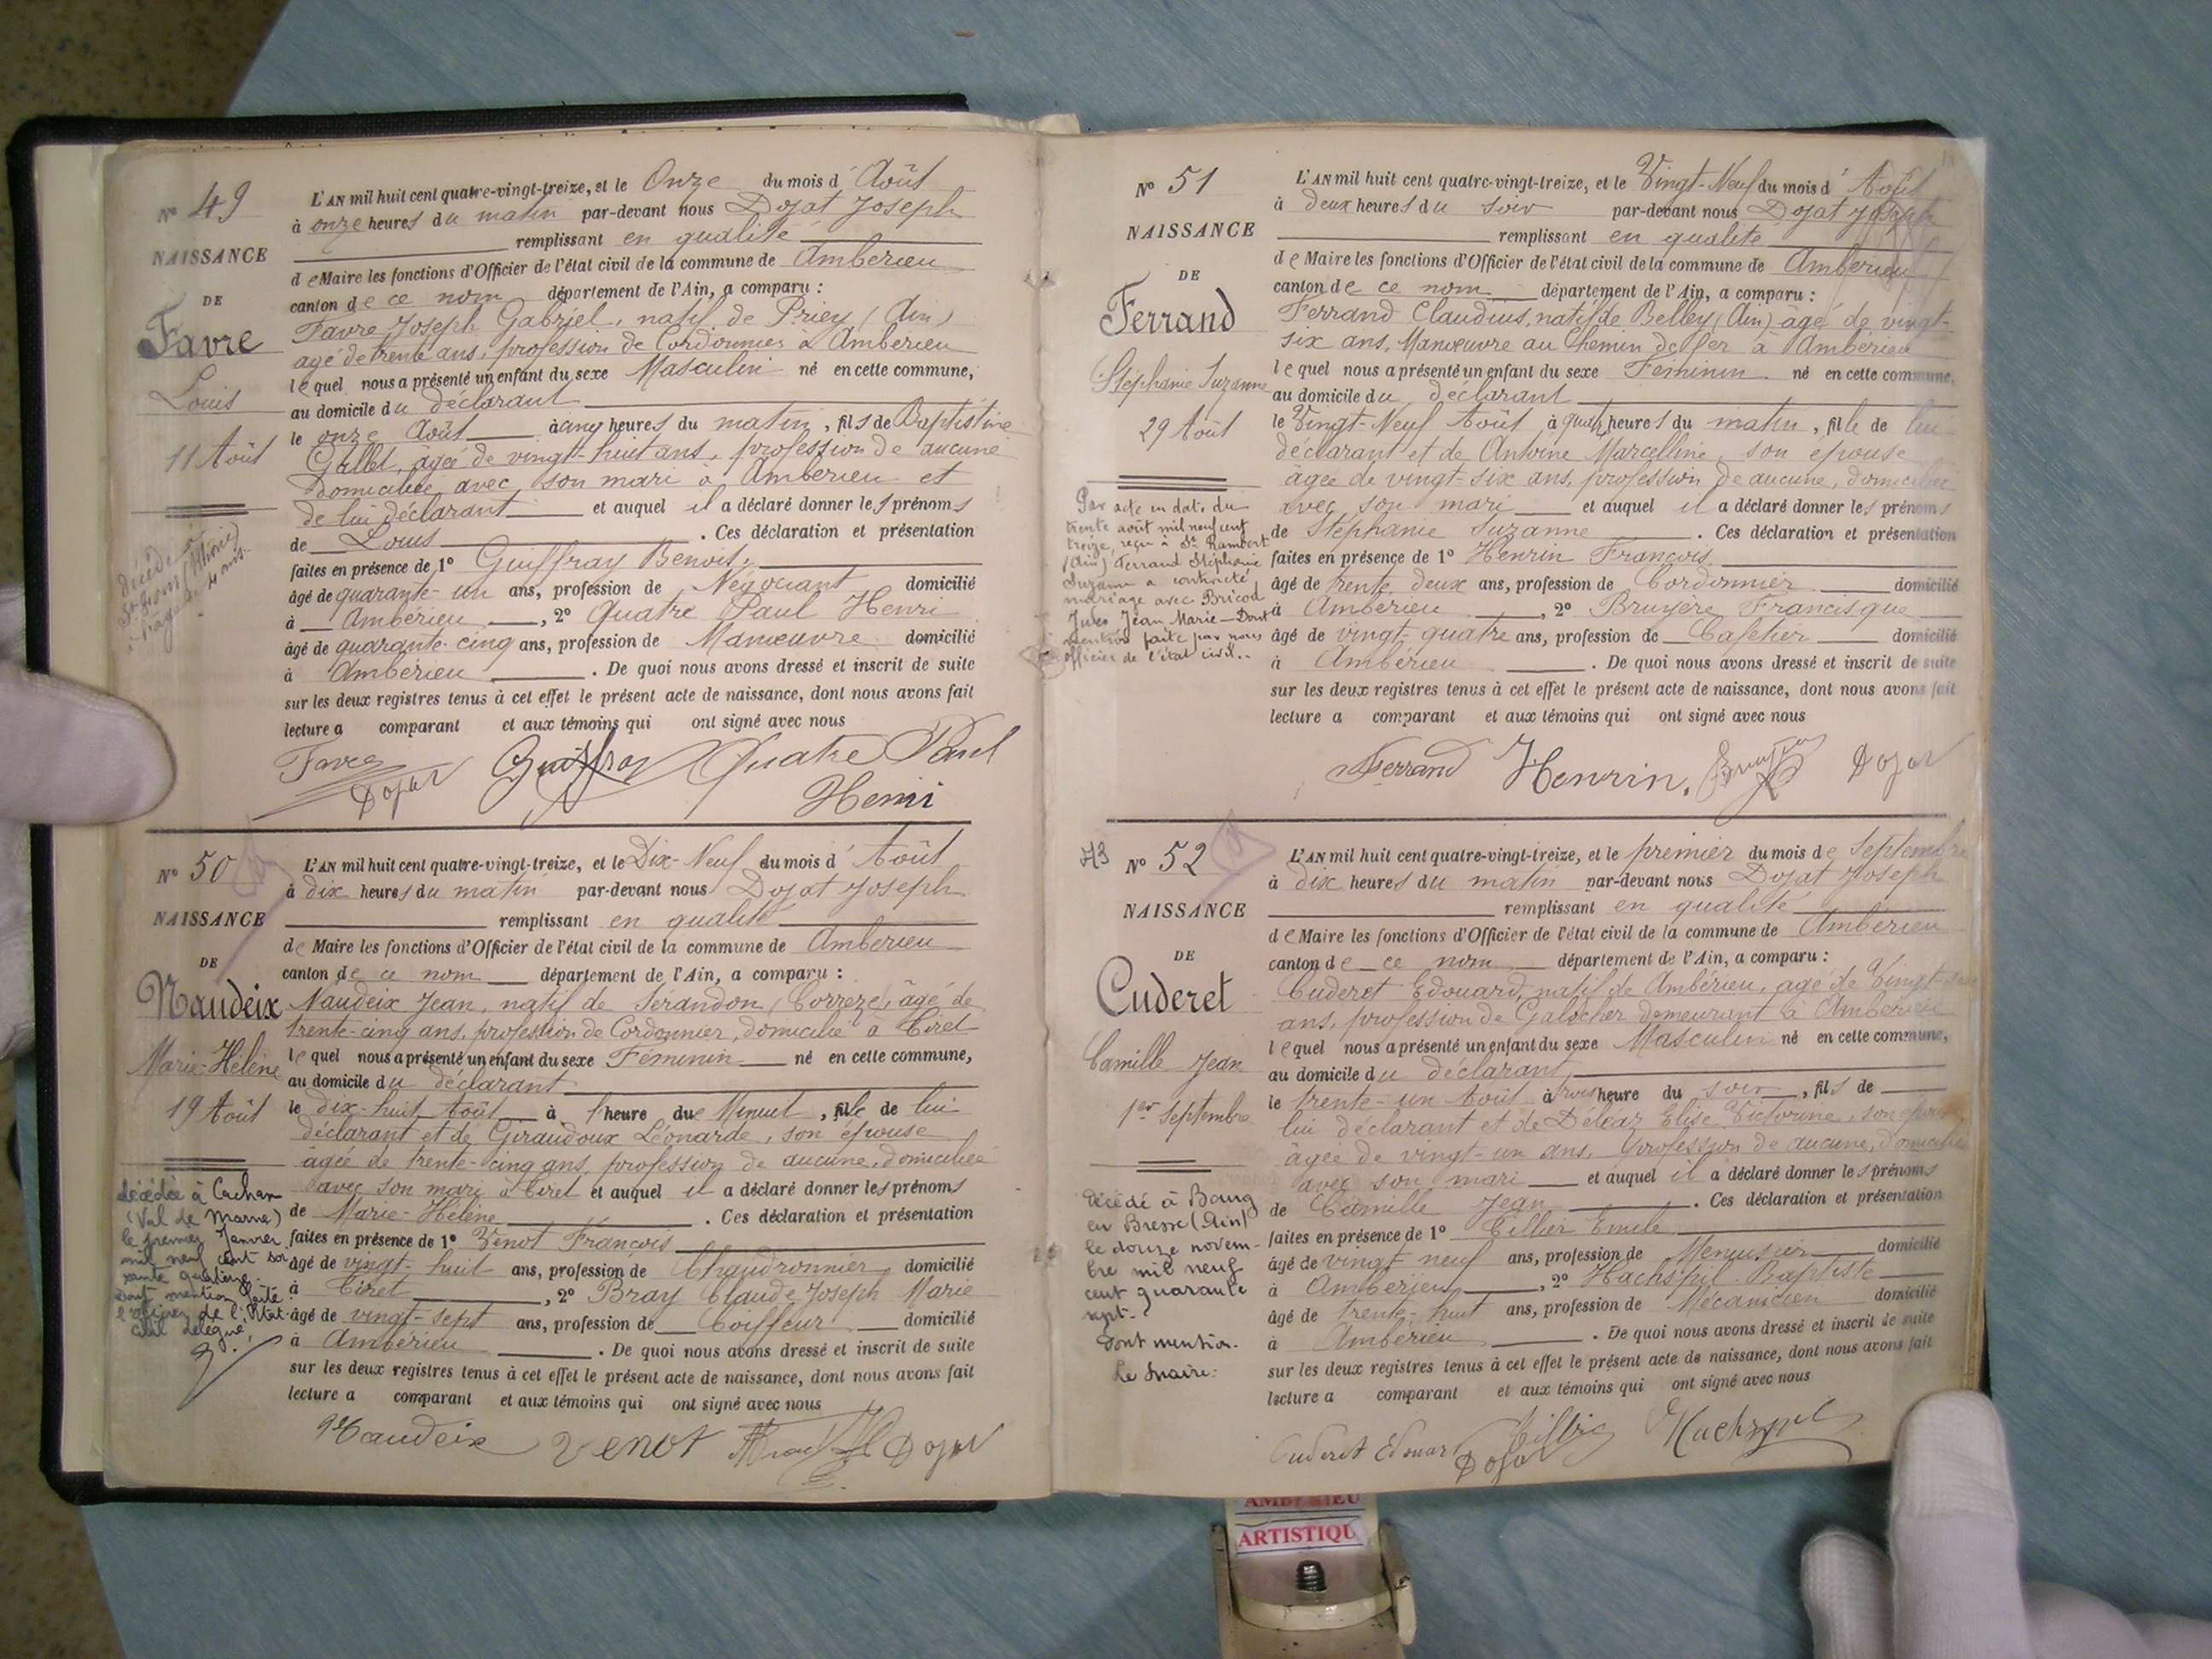 N° 49
NAISSANCE
DE
Favre
Louis
11 Août
L'AN mil huit cent quatre-vingt-treize, et le Onze du mois d' Août
à onze heures du matin par-devant nous Dojat Joseph
remplissant en qualité
de Maire les fonctions d'Officier de l'état civil de la commune de Ambérieu
canton de ce nom département de l'Ain, a comparu :
Favre Joseph Gabriel, natif de Priey (Ain)
agé de trente ans, profession de Cordonnier à Ambérieu
lequel nous a présenté un enfant du sexe Masculin né en cette commune,
au domicile du déclarant
le onze Août à cinq heures du matin, fils de Baptistine
Gallet, âgée de vingt-huit ans, profession de aucune
domiciliée avec son mari à Ambérieu et
de lui déclarant et auquel il a déclaré donner les prénoms
de Louis . Ces déclaration et présentation
faites en présence de 1° Guiffray Benoit,
âgé de quarante-un ans, profession de Négociant domicilié
à Ambérieu, 2° Quatre Paul Henri
âgé de quarante-cinq ans, profession de Manœuvre domicilié
à Ambérieu . De quoi nous avons dressé et inscrit de suite
sur les deux registres tenus à cet effet le présent acte de naissance, dont nous avons fait
lecture a comparant et aux témoins qui ont signé avec nous
Favre Dojat Guiffray Quatre Paul
Henri
N° 50
NAISSANCE
DE
Naudeix
Marie-Hélène
19 Août
décédée à Cachan
(Val de Marne)
le premier Janvier
mil neuf cent soi-
xante quatorze
dont mention faite
l'officier de l'Etat-
civil délégué,
L'AN mil huit cent quatre-vingt-treize, et le Dix-Neuf du mois d' Août
à dix heures du matin par-devant nous Dojat Joseph
remplissant en qualité
de Maire les fonctions d'Officier de l'état civil de la commune de Ambérieu
canton de ce nom département de l'Ain, a comparu :
Naudeix Jean, natif de Sérandon (Corrèze), âgé de
trente-cinq ans, profession de Cordonnier, domicilié à Tiret
lequel nous a présenté un enfant du sexe Féminin né en cette commune,
au domicile du déclarant
le dix-huit Août à l'heure de Minuit, fille de lui
déclarant et de Giraudoux Léonarde, son épouse
âgée de trente-cinq ans, profession de aucune, domiciliée
avec son mari à Tiret et auquel il a déclaré donner les prénoms
de Marie-Hélène . Ces déclaration et présentation
faites en présence de 1° Venot François
âgé de vingt-huit ans, profession de Chaudronnier domicilié
à Tiret, 2° Bray Claude Joseph Marie
âgé de vingt-sept ans, profession de Coiffeur domicilié
à Ambérieu . De quoi nous avons dressé et inscrit de suite
sur les deux registres tenus à cet effet le présent acte de naissance, dont nous avons fait
lecture a comparant et aux témoins qui ont signé avec nous
Naudeix Venot Bray Dojat
N° 51
NAISSANCE
DE
Ferrand
Stéphanie Suzanne
29 Août
Par acte en date du
trente août mil neuf cent
treize, reçu à St Rambert
(Ain) Ferrand Stéphanie
Suzanne a contracté
mariage avec Bricod
Jules Jean Marie - Dont
mention faite par nous
officier de l'état civil.
L'AN mil huit cent quatre-vingt-treize, et le Vingt-Neuf du mois d' Août
à deux heures du soir par-devant nous Dojat Joseph
remplissant en qualité
de Maire les fonctions d'Officier de l'état civil de la commune de Ambérieu
canton de ce nom département de l'Ain, a comparu :
Ferrand Claudius, natif de Belley (Ain) âgé de vingt-
six ans, Manœuvre au Chemin de fer à Ambérieu
lequel nous a présenté un enfant du sexe Féminin né en cette commune,
au domicile du déclarant
le Vingt-Neuf Août à quatre heures du matin, fille de lui
déclarant et de Antoine Marcelline, son épouse
âgée de vingt-six ans, profession de aucune, domiciliée
avec son mari et auquel il a déclaré donner les prénoms
de Stéphanie Suzanne . Ces déclaration et présentation
faites en présence de 1° Henrin François
âgé de trente deux ans, profession de Cordonnier domicilié
à Ambérieu, 2° Bruyère Francisque
âgé de vingt-quatre ans, profession de Cafetier domicilié
à Ambérieu . De quoi nous avons dressé et inscrit de suite
sur les deux registres tenus à cet effet le présent acte de naissance, dont nous avons fait
lecture a comparant et aux témoins qui ont signé avec nous
Ferrand Henrin. Dojat
N° 52
NAISSANCE
DE
Cuderet
Camille Jean
1er Septembre
décédé à Bourg
en Bresse (Ain)
le douze novem-
bre mil neuf
cent quarante
sept.
Dont mention.
Le Maire:
L'AN mil huit cent quatre-vingt-treize, et le premier du mois de Septembre
à dix heures du matin par-devant nous Dojat Joseph
remplissant en qualité
de Maire les fonctions d'Officier de l'état civil de la commune de Ambérieu
canton de ce nom département de l'Ain, a comparu :
Cuderet Edouard, natif de Ambérieu, agé de Vingt-
ans, profession de Galocher demeurant à Ambérieu
lequel nous a présenté un enfant du sexe Masculin né en cette commune,
au domicile du déclarant
le trente-un Août à trois heure du soir, fils de
lui déclarant et de Déléaz Elise Victorine, son épouse
âgée de vingt-un ans, profession de aucune, domiciliée
avec son mari et auquel il a déclaré donner les prénoms
de Camille Jean . Ces déclaration et présentation
faites en présence de 1° Tillier Emile
âgé de vingt neuf ans, profession de Menuisier domicilié
à Ambérieu, 2° Hachspil Baptiste
âgé de trente-huit ans, profession de Mécanicien domicilié
à Ambérieu . De quoi nous avons dressé et inscrit de suite
sur les deux registres tenus à cet effet le présent acte de naissance, dont nous avons fait
lecture a comparant et aux témoins qui ont signé avec nous
Cuderet Edouard Dojat Hachspil
ARTISTIQU